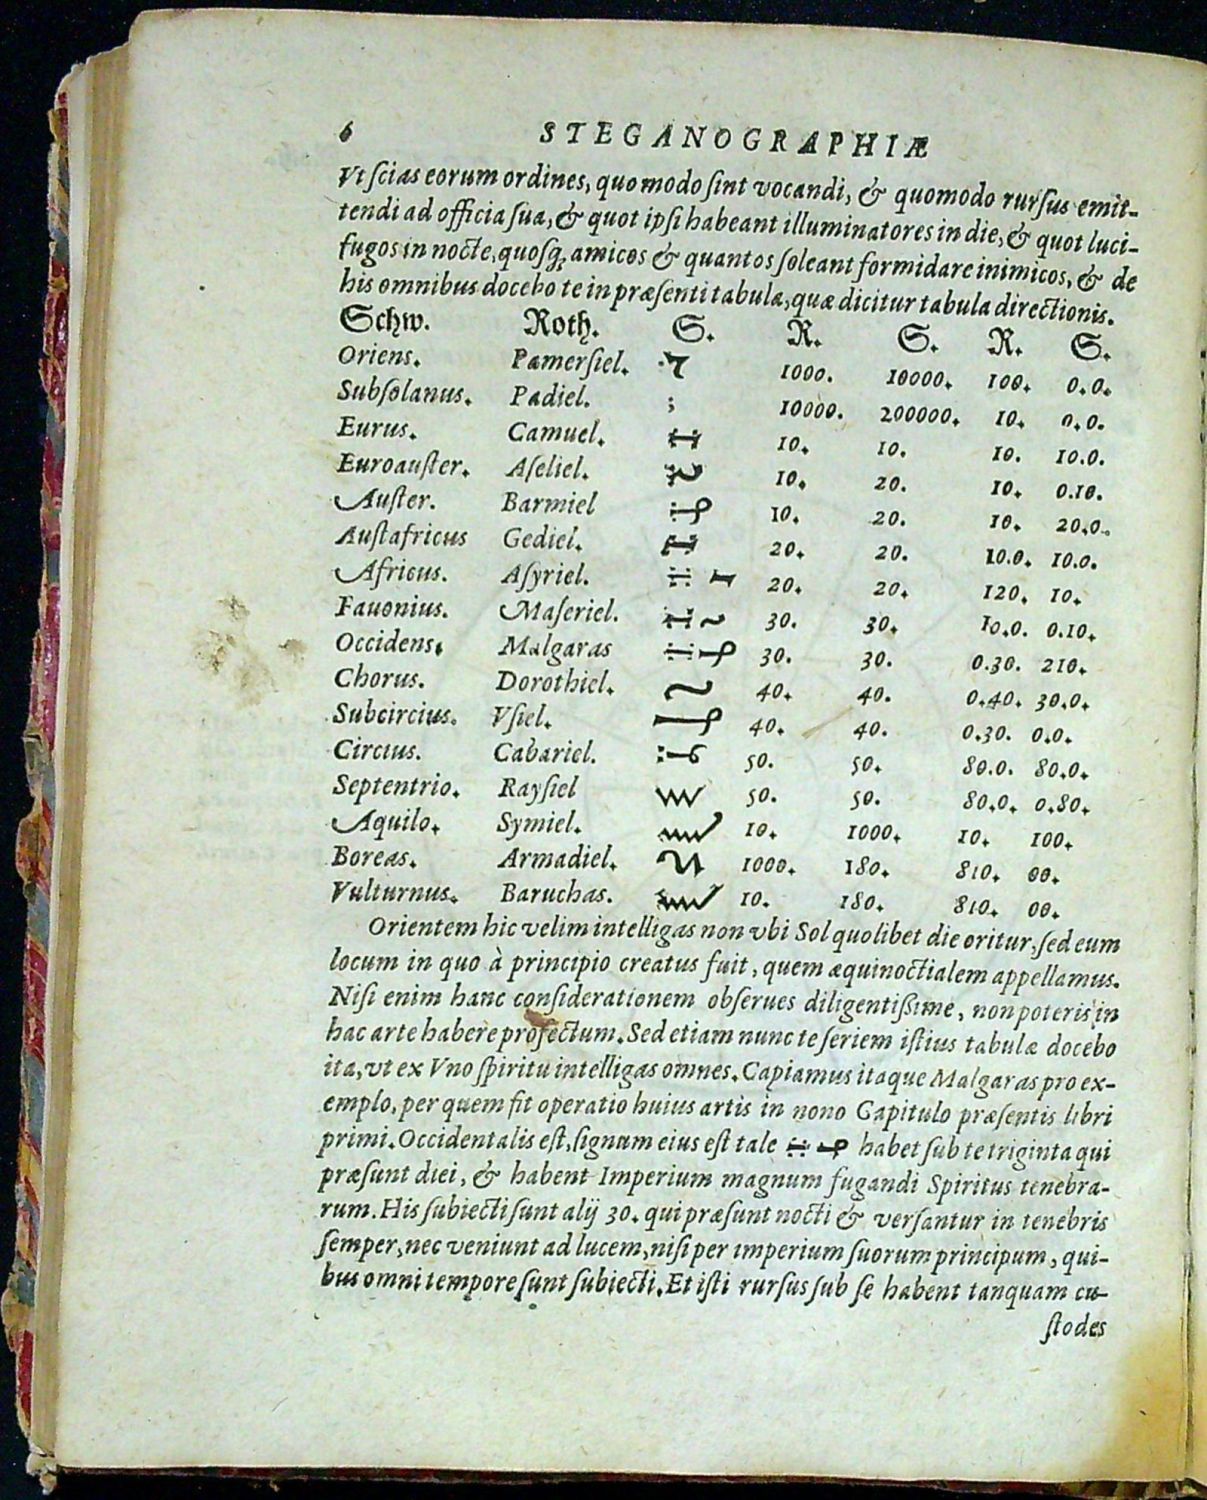 6 STEGANOGRAPHIÆ
Vt ſcias eorum ordines, quomodo ſint vocandi, & quomodo rurſus emit-
tendi ad officia ſua, & quot ipſi habeant illuminatores in die, & quot luci-
fugos in nocte, quoſq; amicos & quantos ſoleant formidare inimicos, & de
his omnibus docebo te in præſenti tabula, quæ dicitur tabula directionis.
Schw. Roth. S. R. S. R. S.
Oriens. Pamerſiel. 1000. 10000. 100. 0.0.
Subſolanus. Padiel. 10000. 200000. 10. 0.0.
Eurus. Camuel. 10. 10. 10. 10.0.
Euroauſter. Aſeliel. 10. 20. 10. 0.10.
Auſter. Barmiel 10. 20. 10. 20.0.
Auſtafricus Gediel. 20. 20. 10.0. 10.0.
Africus. Aſyriel. 20. 20. 120. 10.
Fauonius. Maſeriel. 30. 30. 10.0. 0.10.
Occidens. Malgaras 30. 30. 0.30. 210.
Chorus. Dorothiel. 40. 40. 0.40. 30.0.
Subcircius. Vſiel. 40. 40. 0.30. 0.0.
Circius. Cabariel. 50. 50. 80.0. 80.0.
Septentrio. Rayſiel 50. 50. 80.0. 0.80.
Aquilo. Symiel. 10. 1000. 10. 100.
Boreas. Armadiel. 1000. 180. 810. 00.
Vulturnus. Baruchas. 10. 180. 810. 00.
Orientem hic velim intelligas non vbi Sol quolibet die oritur, ſed eum
locum in quo à principio creatus fuit, quem æquinoctialem appellamus.
Niſi enim hanc conſiderationem obſerues diligentißime, non poteris in
hac arte habere profectum. Sed etiam nunc te ſeriem iſtius tabulæ docebo
ita, vt ex Vno ſpiritu intelligas omnes. Capiamus itaque Malgaras pro ex-
emplo, per quem fit operatio huius artis in nono Capitulo præſentis libri
primi. Occidentalis eſt, ſignum eius eſt tale habet ſub te triginta qui
præſunt diei, & habent Imperium magnum fugandi Spiritus tenebra-
rum. His ſubiecti ſunt alij 30. qui præſunt nocti & verſantur in tenebris
ſemper, nec veniunt ad lucem, niſi per imperium ſuorum principum, qui-
bus omni tempore ſunt ſubiecti. Et iſti rurſus ſub ſe habent tanquam cu-
ſtodes